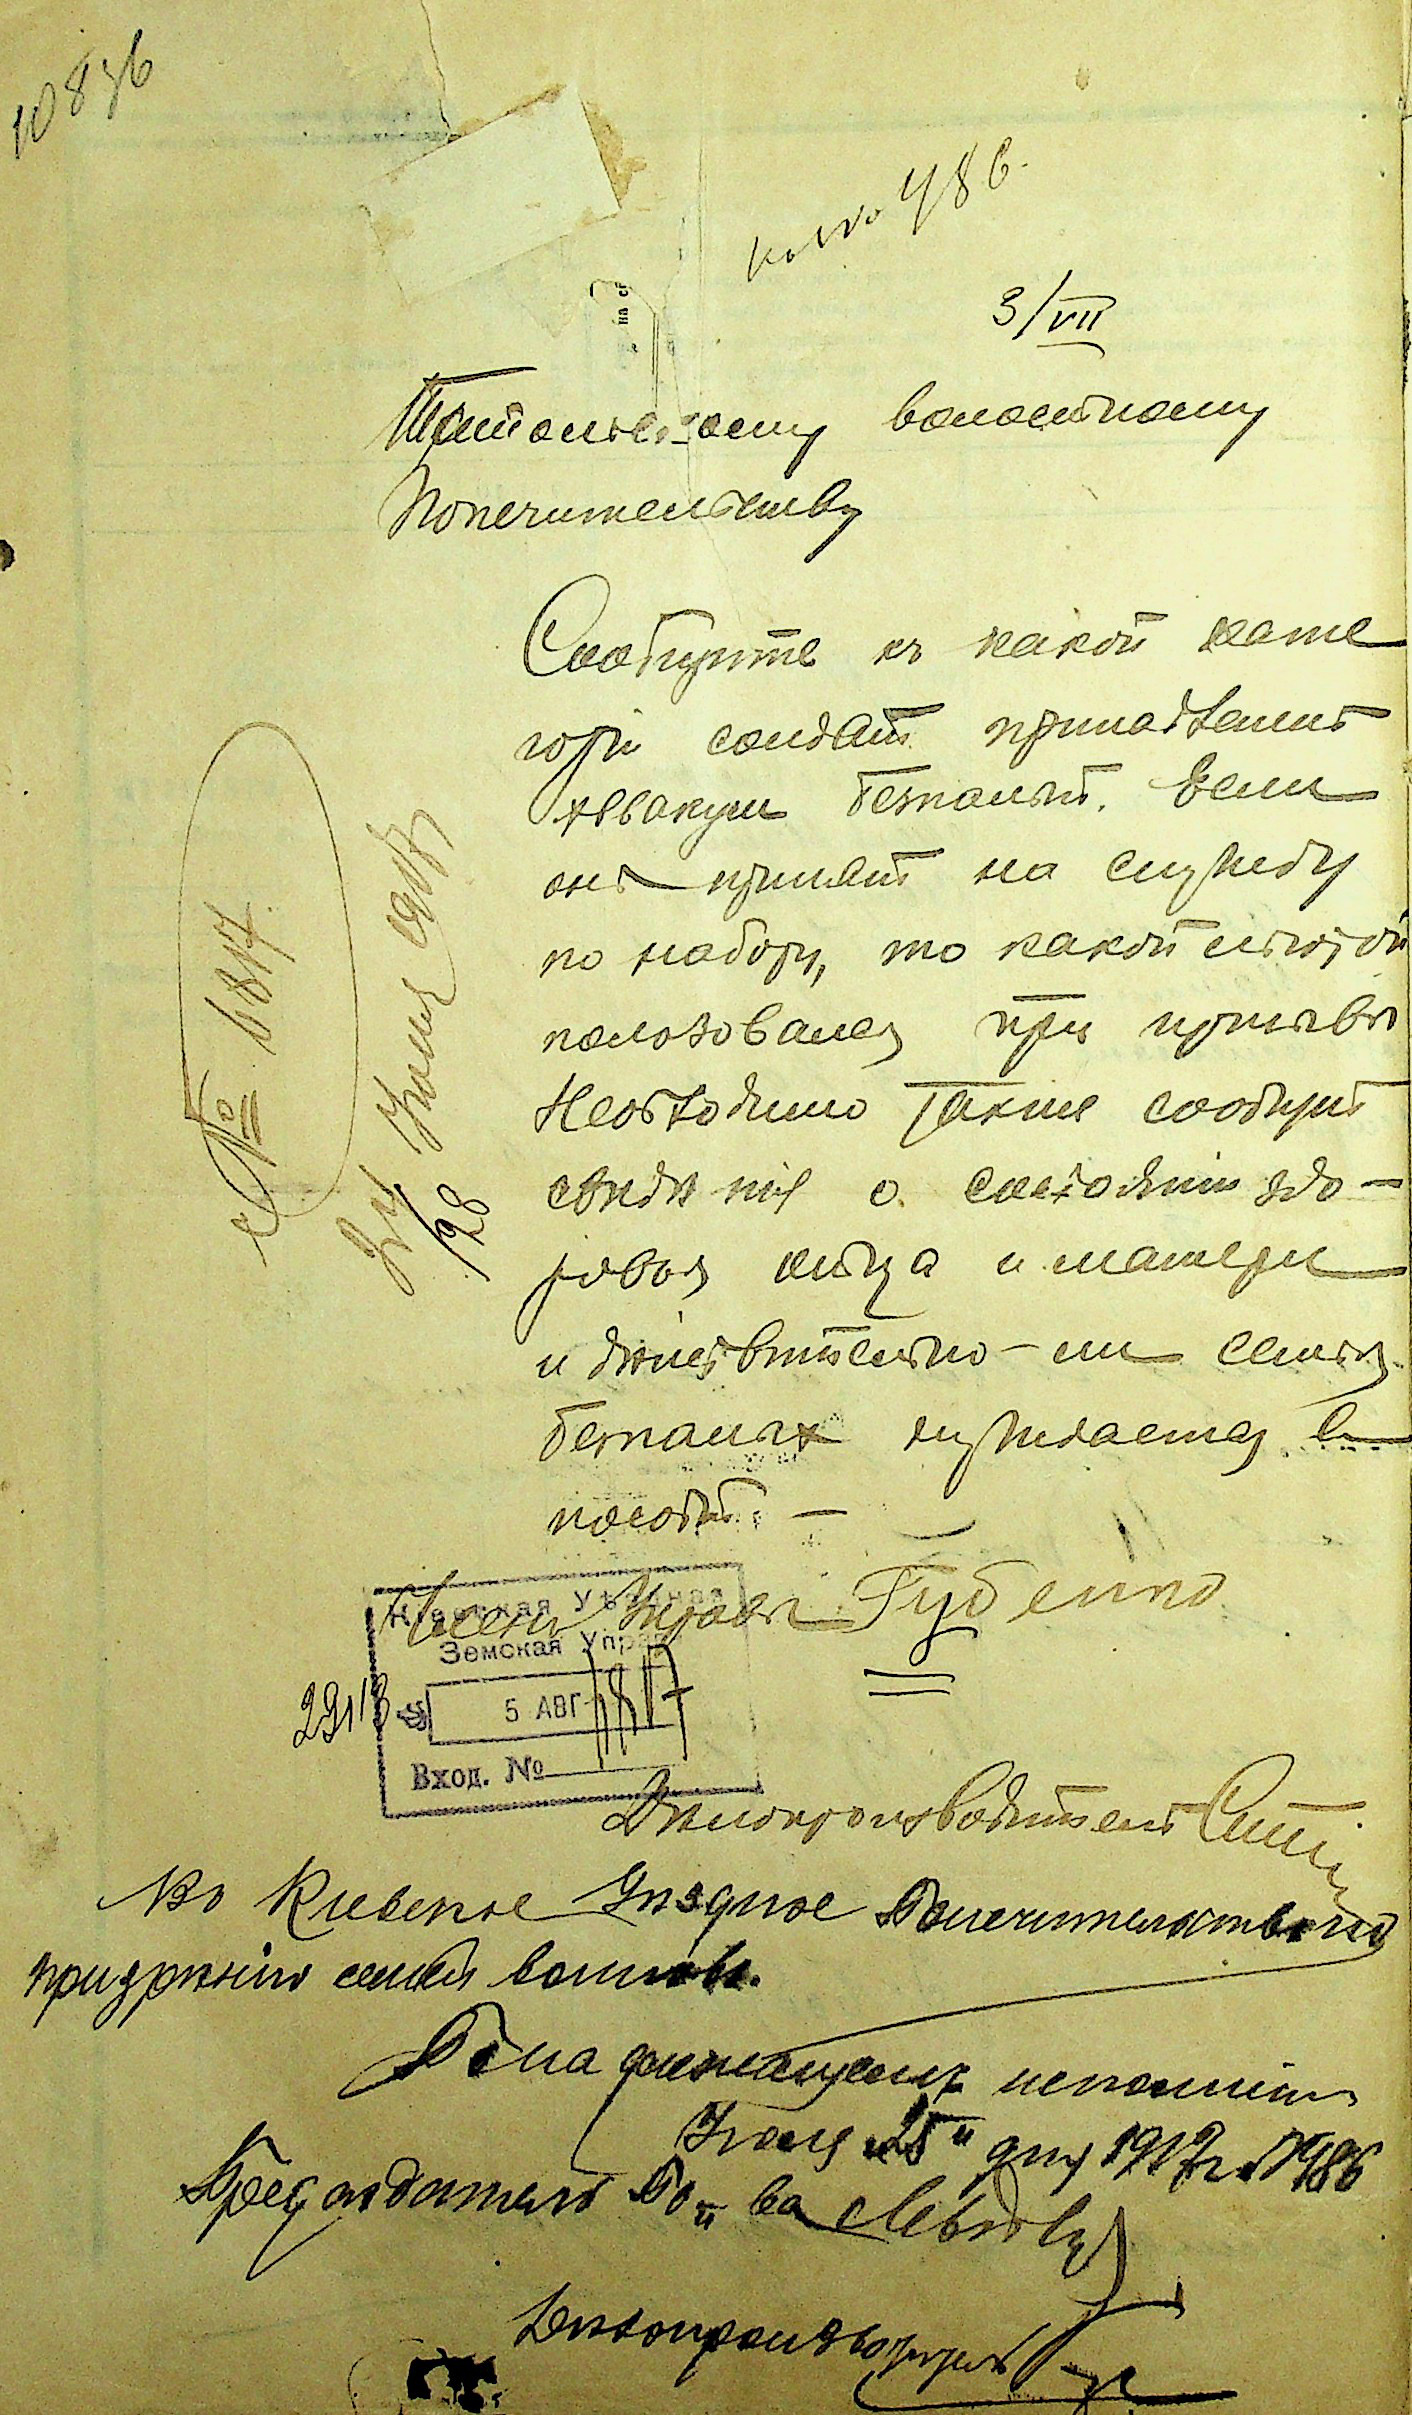 10876
къ № 486.
3/VII
волостному
Попечительству
Сообщите къ какой кате
горiи солдатъ принадлежитъ
Аввакум Безпалый. Если
онъ принятъ на службу
по набору, то какой льготой
пользовался при призывѣ
Необходимо также сообщить
свѣдѣнiя о состоянiи здо-
ровья отца и матери
и дѣйствительно-ли семья
Безпалыхъ нуждается въ
пособiи —
№ 6817
Iюля
1/28
Членъ Управы Губенко
Кіевская Уѣздная
Земская Управа
5 АВГ 1917
Вход. №
29113
Дѣлопроизводитель
Въ Кiевское Уѣздное Попечительство по
призрѣнiю семей воиновъ.
По надлежащемъ исполненiи
Iюля "25" дня 1917 г. № 486
Предсѣдатель Поп-ва
Дѣлопроизводитель